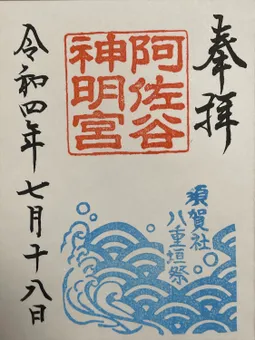 奉拝
阿佐谷
神明宮
須賀社
八重垣祭
令和四年七月十八日